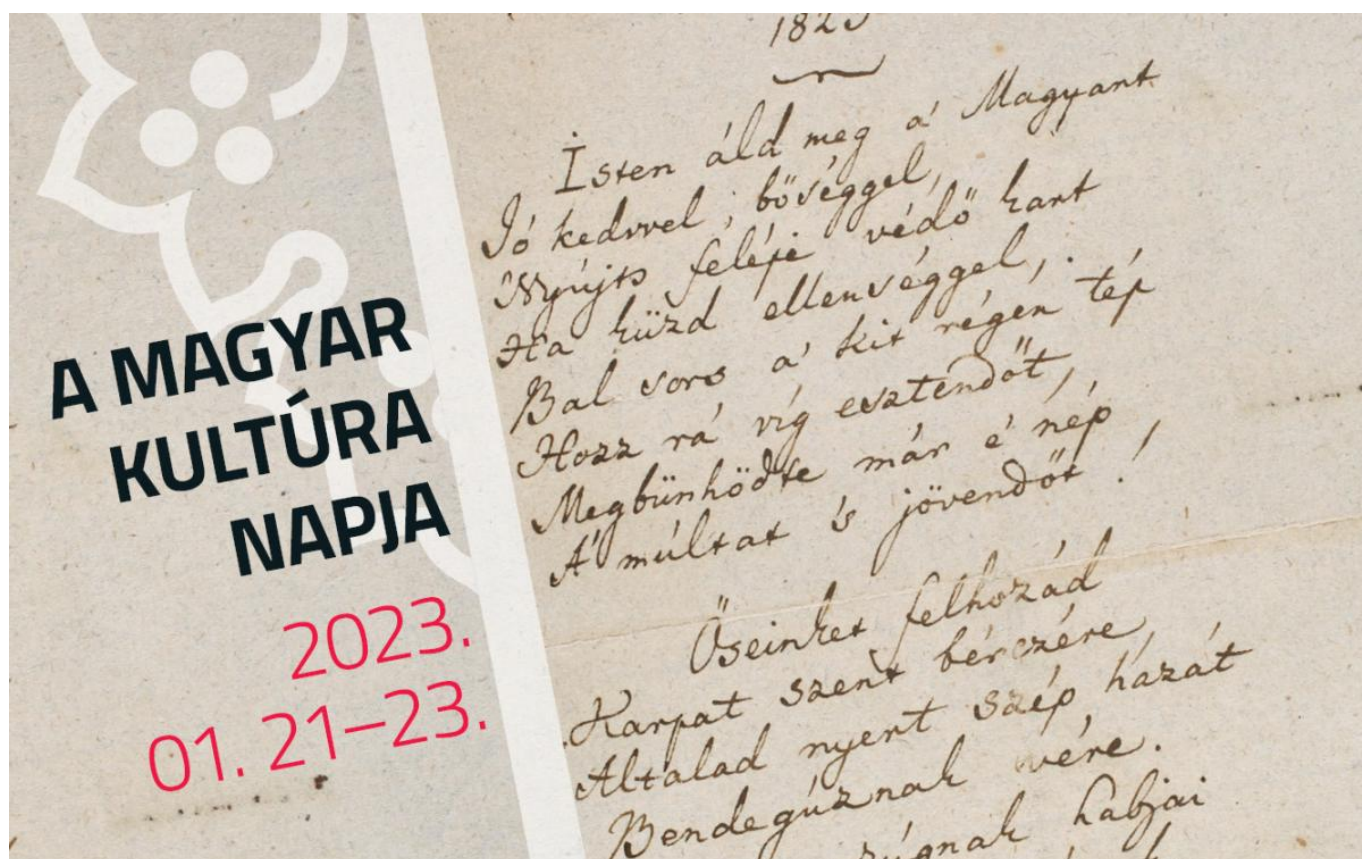 A MAGYAR
KULTÚRA
NAPJA
2023.
01. 21–23.
1823
Isten áld meg a' Magyart
Jó kedvvel, bőséggel,
Nyújts feléje védő kart
Ha küzd ellenséggel,
Bal sors a' kit régen tép
Hozz rá víg esztendőt,
Megbünhödte már é nép
A' múltat 's jövendőt!
Őseinket felhozád
Karpat szent bérczére,
Általad nyert szép hazát
Bendegúznak vére.
habjai